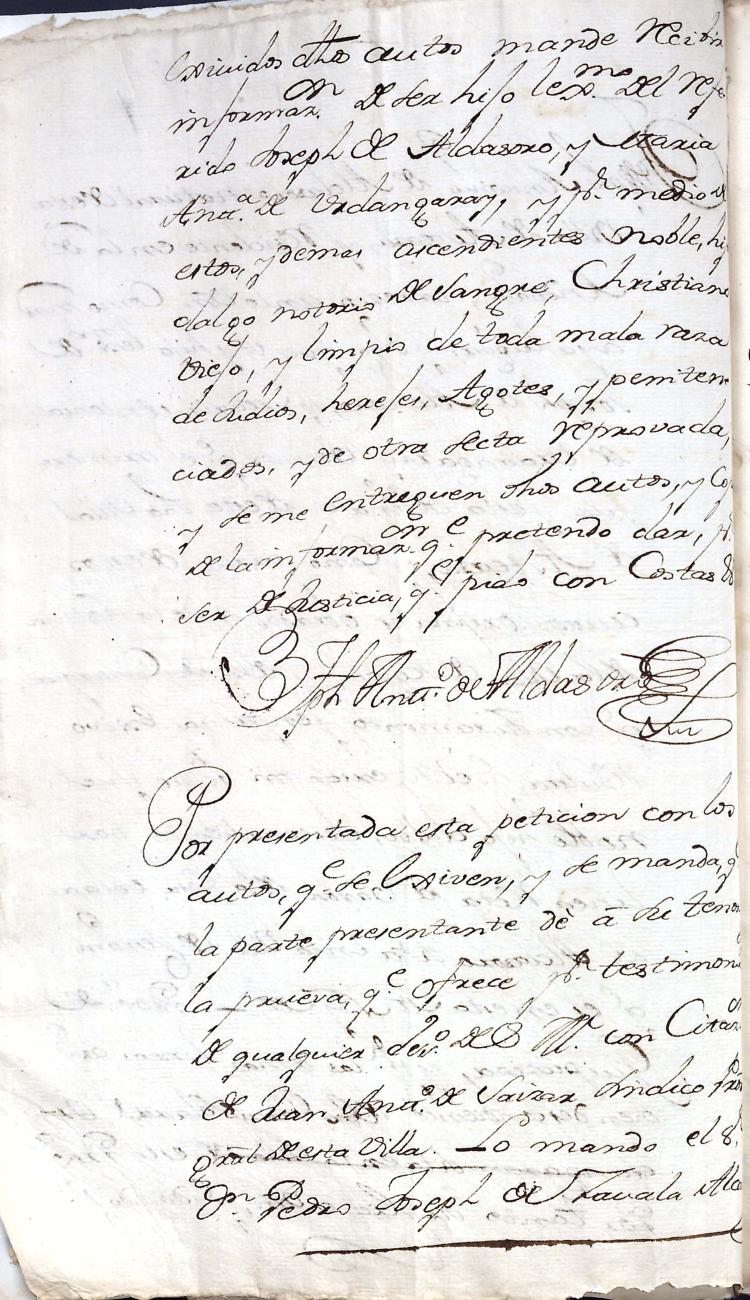 Exividos dhos autos mande Recibir
informaz.on de ser hijo lexmo. del Refe
rido Joseph de Aldasoro, y Maria
Anta. de Urdangaray, y pr. medio de
estos, y demas ascendientes noble, hi
dalgo notorio de sangre, Christiano
viejo, y limpio de toda mala raza
de Judios, herejes, Agotes, y peniten
ciados, y de otra secta reprovada,
y se me entreguen dhos autos, y Co
de la informaz.on q.e pretendo dar, p.r
ser de Justicia, q.e pido con Costas
Jph Anto. de Aldasoro
Por presentada esta peticion con los
autos, q.e se Exiven, y se manda, q
la parte presentante dè a su tenor
la prueva, q.e ofrece p.r testimoni
de qualquier es.no de S M. con Citaz
de Juan Anto. de Saizar Sindico Pro
gral de esta Villa. Lo mando el S.
Dn. Pedro Joseph de Zavala Alc